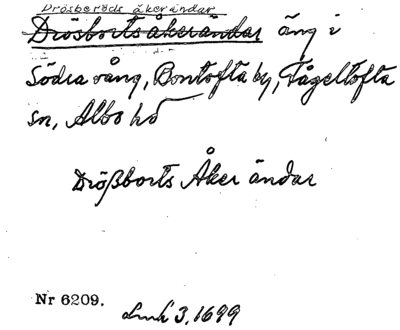 Drösboröds åkerändar
Drösborts åkerändar äng i
Södra vång, Bontofta by, Fågeltofta
sn, Albo hd
Drößborts Åker ändar
Nr 6209.
Lmk 3, 1699